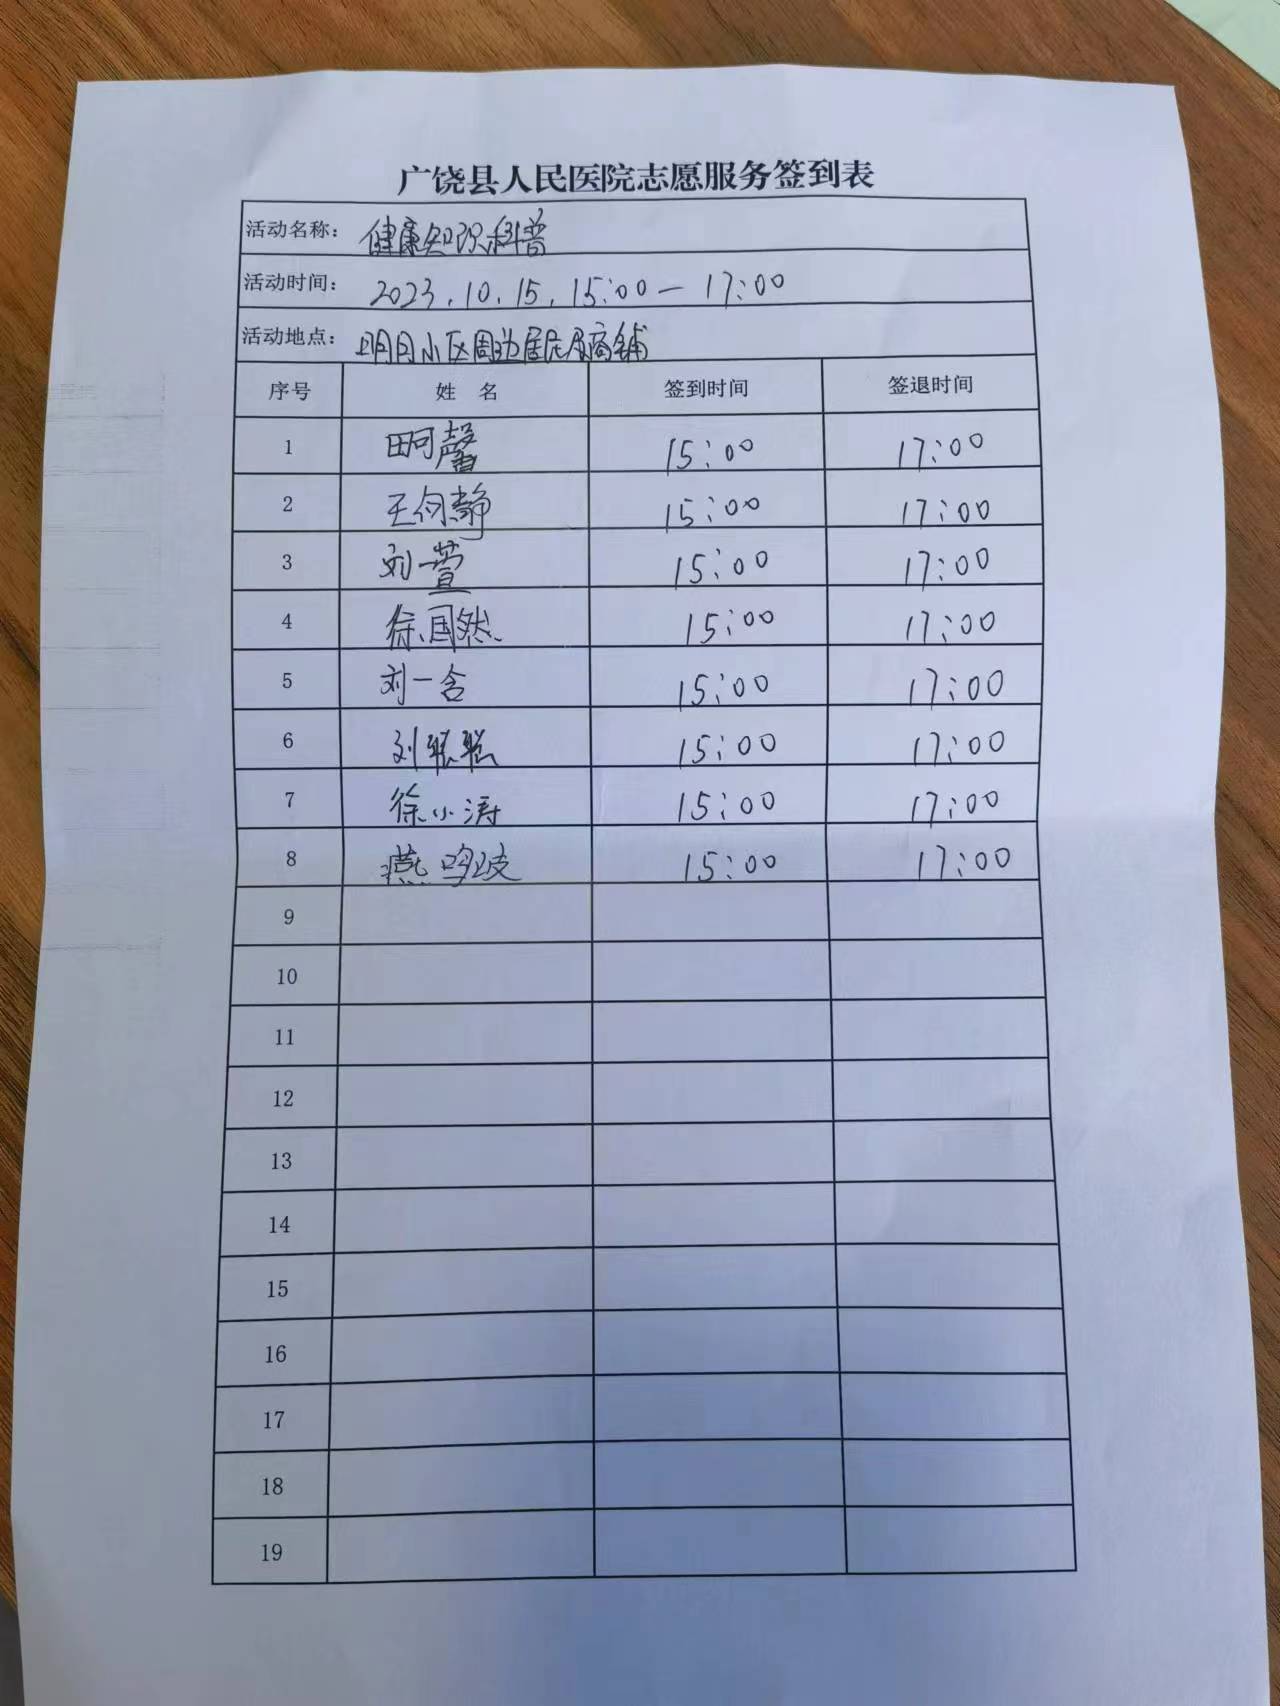 广饶县人民医院志愿服务签到表
活动名称：健康知识科普
活动时间：2023.10.15.15:00—17:00
活动地点：明月小区周边居民及商铺
序号 姓 名 签到时间 签退时间
1 田珂馨 15:00 17:00
2 王向静 15:00 17:00
3 刘一萱 15:00 17:00
4 徐国然 15:00 17:00
5 刘一含 15:00 17:00
6 刘聪聪 15:00 17:00
7 徐小涛 15:00 17:00
8 燕 15:00 17:00
9
10
11
12
13
14
15
16
17
18
19